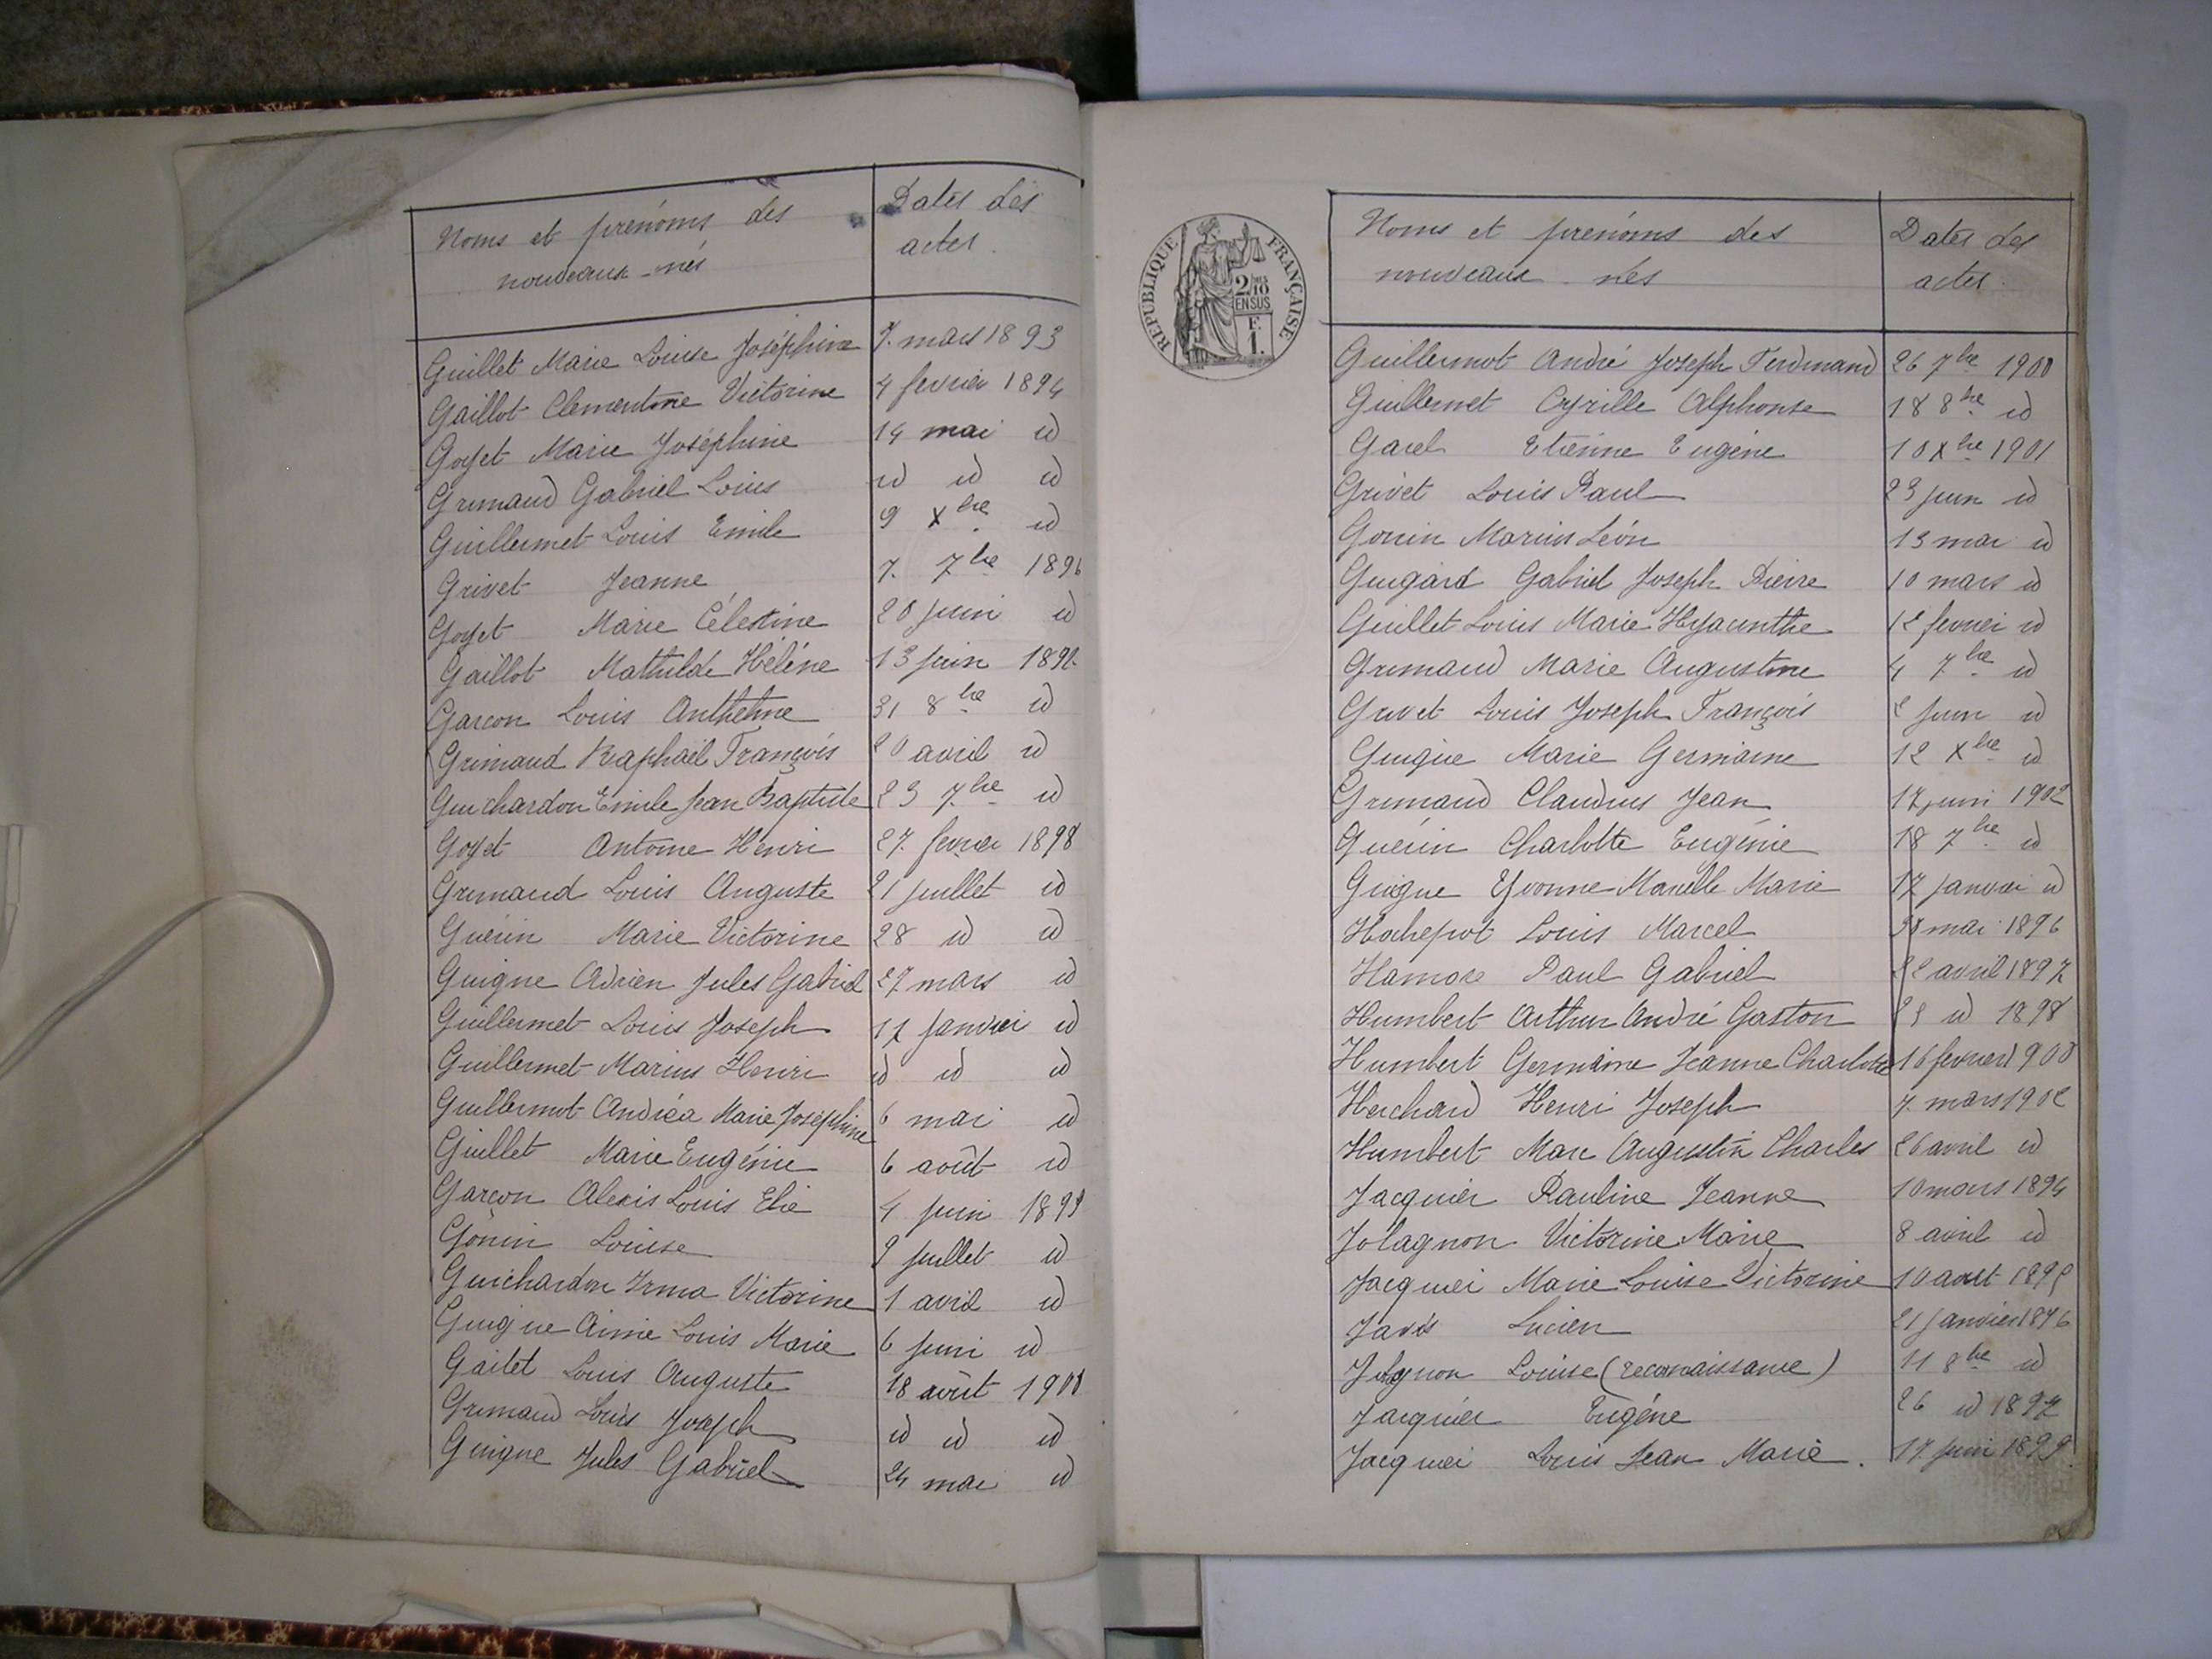 Noms et prénoms des
nouveaux-nés
Dates des
actes.
Guillet Marie Louise Joséphine 7. mars 1893
Gaillot Clementine Victorine 4 fevrier 1894
Goyet Marie Joséphine 14 mai id
Grimaud Gabriel Louis id id id
Guillermet Louis Emile 9 Xbre id
Grivet Jeanne 7. 7bre 1896
Goyet Marie Célestine 20 juin id
Gaillot Mathilde Hélène 13 juin
Garcon Louis Anthelme 31 8bre id
Grimaud Raphaël François 20 avril id
Guichardon Emile Jean Baptiste 23 7bre id
Goyet Antoine Henri 27. fevrier 1898
Grimaud Louis Auguste 21 juillet id
Guérin Marie Victorine 28 id id
Guigne Adrien Jules Gabriel 27 mars id
Guillermet Louis Joseph 17 janvier id
Guillermet Marius Henri id id id
Guillermet Andréa Marie Joséphine 6 mai id
Guillet Marie Eugénie 6 août id
Garçon Alexis Louis Elie 4 juin 1899
Gonin Louise 9 juillet id
Guichardon Irma Victorine 1 avril id
Guigne Aimé Louis Marie 6 juin id
Gaitet Louis Auguste 18 août 1900
Grimaud Louis Joseph id id id
Guigne Jules Gabriel 24 mai id
REPUBLIQUE FRANÇAISE
2/10 EN SUS
F.
1.
Noms et prénoms des
nouveaux-nés
Dates des
actes.
Guillermot André Joseph Ferdinand 26 7bre 1900
Guillermet Cyrille Alphonse 18 8bre id
Garel Etienne Eugène 10 Xbre 1901
Grivet Louis Paul 23 juin id
Gonin Marius Léon 13 mai id
Guigard Gabriel Joseph Pierre 10 mars id
Guillet Louis Marie Hyacinthe 12 fevrier id
Grimaud Marie Augustine 4 7bre id
Grivet Louis Joseph François 2 juin id
Guigue Marie Germaine 12 Xbre id
Grimaud Claudius Jean 17 juin 1902
Guérin Charlotte Eugénie 18 7bre id
Guigne Yvonne Marcelle Marie 17 janvier id
Hochepot Louis Marcel mai 1896
Hamore Paul Gabriel 22 avril 1897
Humbert Arthur André Gaston id 1898
Humbert Germaine Jeanne Charlotte 16 fevrier 1900
Herchard Henri Joseph 7. mars 1902
Humbert Marc Augustin Charles 26 avril id
Jacquier Pauline Jeanne 10 mars 1894
Jolagnon Victorine Marie 8 avril id
Jacquier Marie Louise Victorine 10 aout 1895
Lucien 21 janvier
Louise (reconnaissance) 11 8bre id
Jacquier Eugène 26 id 1897
Jacquier Louis Jean Marie. 17. juin 1899.